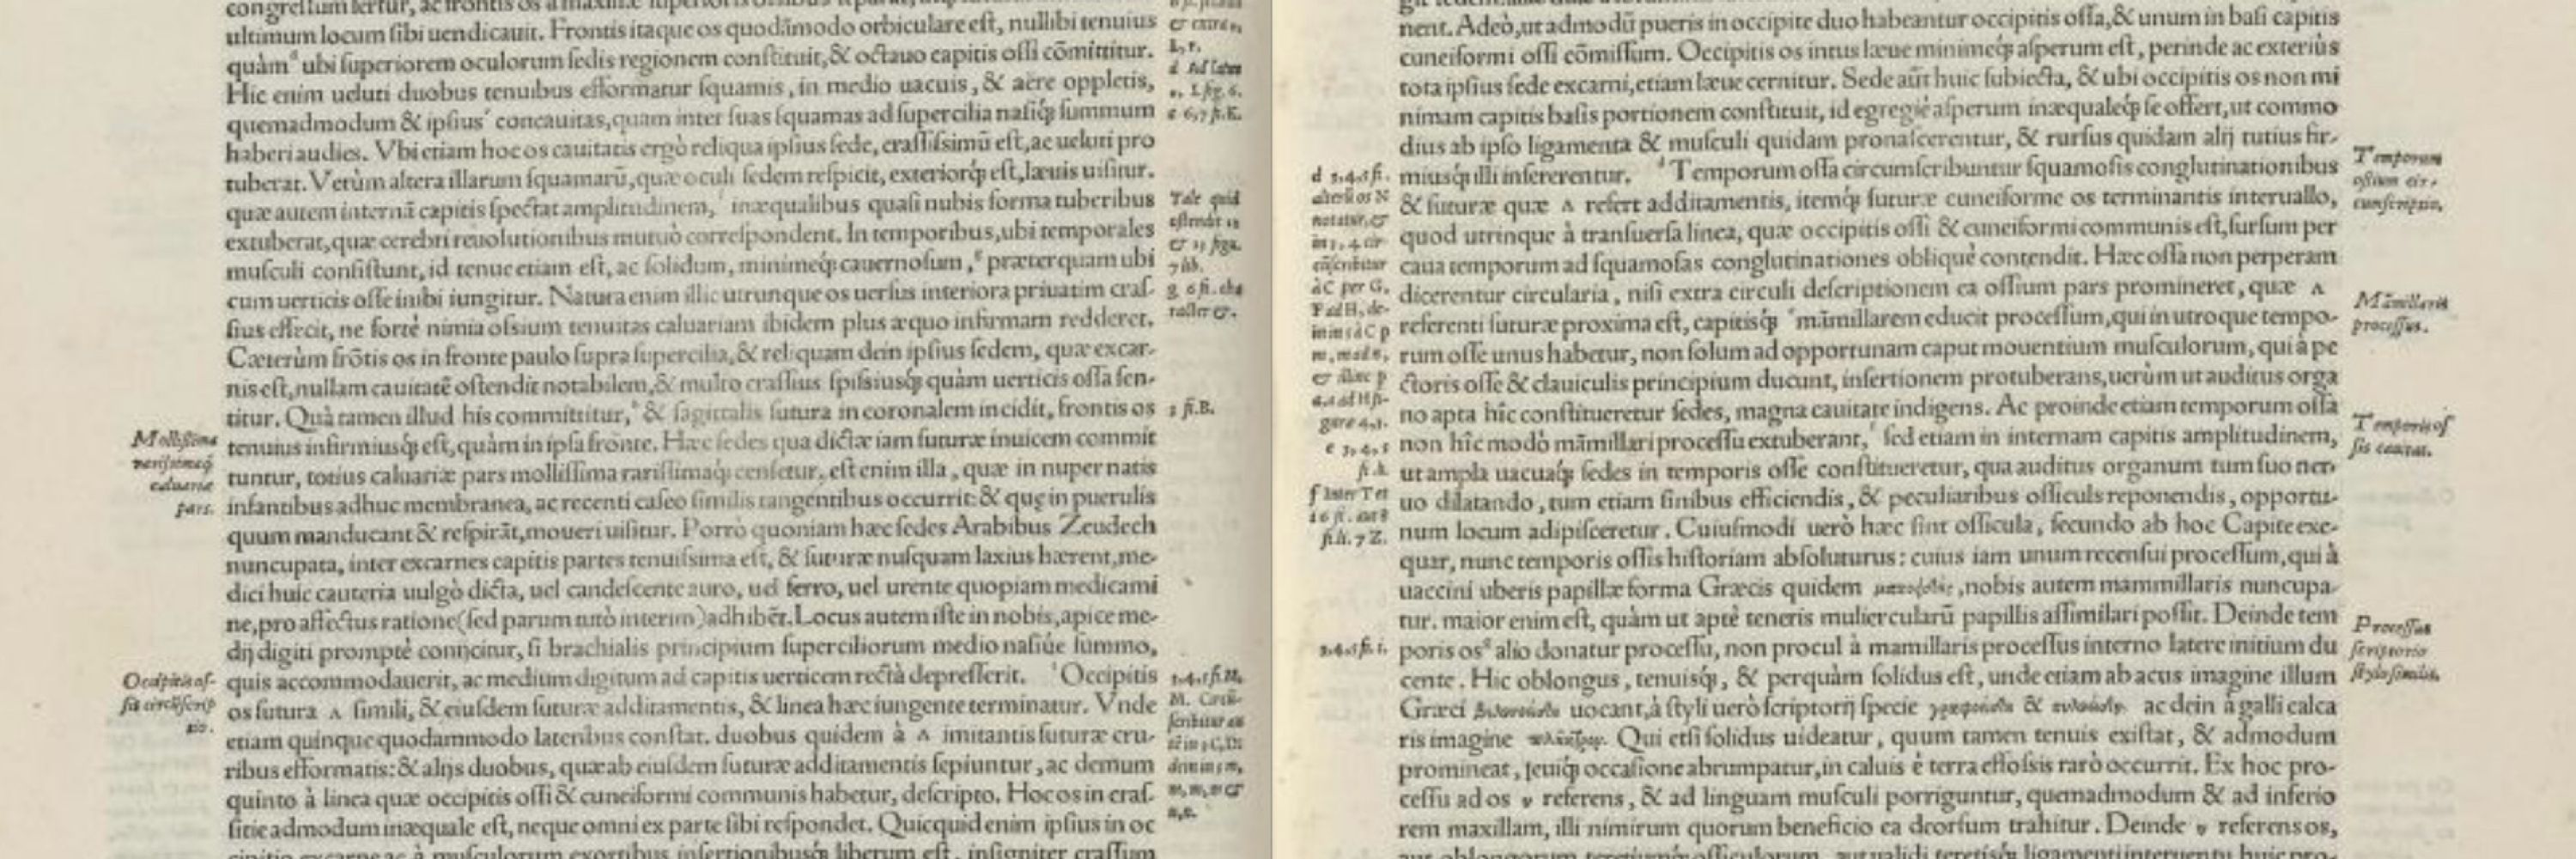 ultimum locum sibi uendicauit. Frontis itaque os quodāmodo orbiculare est, nullibi tenuius
quàm ubi superiorem oculorum sedis regionem constituit, & octauo capitis ossi cōmittitur.
Hic enim ueluti duobus tenuibus efformatur squamis, in medio uacuis, & aëre oppletis,
quemadmodum & ipsius concauitas, quam inter suas squamas ad supercilia nasiq́; summum
haberi audies. Vbi etiam hoc os cauitatis ergò reliqua ipsius sede, crassissimū est, ac ueluti pro
tuberat. Verùm altera illarum squamarū, quæ oculi sedem respicit, exteriorq́; est, læuis uisitur.
quæ autem internā capitis spectat amplitudinem, inæqualibus quasi nubis forma tuberibus
extuberat, quæ cerebri reuolutionibus mutuò correspondent. In temporibus, ubi temporales
musculi consistunt, id tenue etiam est, ac solidum, minimeq́; cauernosum, præterquam ubi
cum uerticis osse inibi iungitur. Natura enim illic utrunque os uersus interiora priuatim cras-
sius effecit, ne fortè nimia ossium tenuitas caluariam ibidem plus æquo infirmam redderet.
Cæterùm frōtis os in fronte paulo supra supercilia, & reliquam dein ipsius sedem, quæ excar-
nis est, nullam cauitatē ostendit notabilem, & multo crassius spissiusq́; quàm uerticis ossa sen-
titur. Quà tamen illud his committitur, & sagittalis sutura in coronalem incidit, frontis os
tenuius infirmiusq́; est, quàm in ipsa fronte. Hæc sedes qua dictæ iam suturæ inuicem commit
tuntur, totius caluariæ pars mollissima rarissimaq́; censetur, est enim illa, quæ in nuper natis
infantibus adhuc membranea, ac recenti caseo similis tangentibus occurrit: & quę in puerulis
quum manducant & respirāt, moueri uisitur. Porrò quoniam hæc sedes Arabibus Zeudech
nuncupata, inter excarnes capitis partes tenuissima est, & suturæ nusquam laxius hærent, me-
dici huic cauteria uulgò dicta, uel candescente auro, uel ferro, uel urente quopiam medicami
ne, pro affectus ratione (sed parum tutò interim) adhibēt. Locus autem iste in nobis, apice me-
dij digiti promptè conijcitur, si brachialis principium superciliorum medio nasiúe summo,
quis accommodauerit, ac medium digitum ad capitis uerticem rectà depresserit. Occipitis
os sutura Λ simili, & eiusdem suturæ additamentis, & linea hæc iungente terminatur. Vnde
etiam quinque quodammodo lateribus constat. duobus quidem à Λ imitantis suturæ cru-
ribus efformatis: & alijs duobus, quæ ab eiusdem suturæ additamentis sepiuntur, ac demum
quinto à linea quæ occipitis ossi & cuneiformi communis habetur, descripto. Hoc os in cras-
sitie admodum inæquale est, neque omni ex parte sibi respondet. Quicquid enim ipsius in oc
Mollissima
rarissimaq́
caluariæ
pars.
Occipitis os-
sis circūscrip
tio.
Tale quid
7 lib.
1 fi. B.
nent. Adeò, ut admodū pueris in occipite duo habeantur occipitis ossa, & unum in basi capitis
cuneiformi ossi cōmissum. Occipitis os intus læue minimeq́; asperum est, perinde ac exteriùs
tota ipsius sede excarni, etiam læue cernitur. Sede aūt huic subiecta, & ubi occipitis os non mi
nimam capitis basis portionem constituit, id egregiè asperum inæqualeq́; se offert, ut commo
dius ab ipso ligamenta & musculi quidam pronascerentur, & rursus quidam alij tutius fir-
miusq́; illi insererentur. Temporum ossa circumscribuntur squamosis conglutinationibus
& suturæ quæ Λ refert additamentis, itemq́; suturæ cuneiforme os terminantis interuallo,
quod utrinque à transuersa linea, quæ occipitis ossi & cuneiformi communis est, sursum per
caua temporum ad squamosas conglutinationes obliquè contendit. Hæc ossa non perperam
dicerentur circularia, nisi extra circuli descriptionem ea ossium pars promineret, quæ Λ
referenti suturæ proxima est, capitisq́; māmillarem educit processum, qui in utroque tempo-
rum osse unus habetur, non solum ad opportunam caput mouentium musculorum, qui à pe
ctoris osse & clauiculis principium ducunt, insertionem protuberans, uerùm ut auditus orga
no apta hîc constitueretur sedes, magna cauitate indigens. Ac proinde etiam temporum ossa
non hîc modò māmillari processu extuberant, sed etiam in internam capitis amplitudinem,
ut ampla uacuaq́; sedes in temporis osse constitueretur, qua auditus organum tum suo ner-
uo dilatando, tum etiam sinibus efficiendis, & peculiaribus ossiculs reponendis, opportu-
num locum adipisceretur. Cuiusmodi uerò hæc sint ossicula, secundo ab hoc Capite exe-
quar, nunc temporis ossis historiam absoluturus: cuius iam unum recensui processum, qui à
uaccini uberis papillæ forma Græcis quidem, nobis autem mammillaris nuncupa-
tur. maior enim est, quàm ut aptè teneris muliercularū papillis assimilari possit. Deinde tem
poris os alio donatur processu, non procul à mamillaris processus interno latere initium du
cente. Hic oblongus, tenuisq́;, & perquàm solidus est, unde etiam ab acus imagine illum
Græci uocant, à styli uerò scriptorij specie & ac dein à galli calca
ris imagine Qui etsi solidus uideatur, quum tamen tenuis existat, & admodum
promineat, leuiq́; occasione abrumpatur, in caluis è terra effossis rarò occurrit. Ex hoc pro-
cessu ad os υ referens, & ad linguam musculi porriguntur, quemadmodum & ad inferio
rem maxillam, illi nimirum quorum beneficio ea deorsum trahitur. Deinde υ referens os,
Temporum
ossium cir-
cumscriptio.
Māmillaris
processus.
Temporis os
sis cauitas.
Processus
scriptorio
stylo similis.